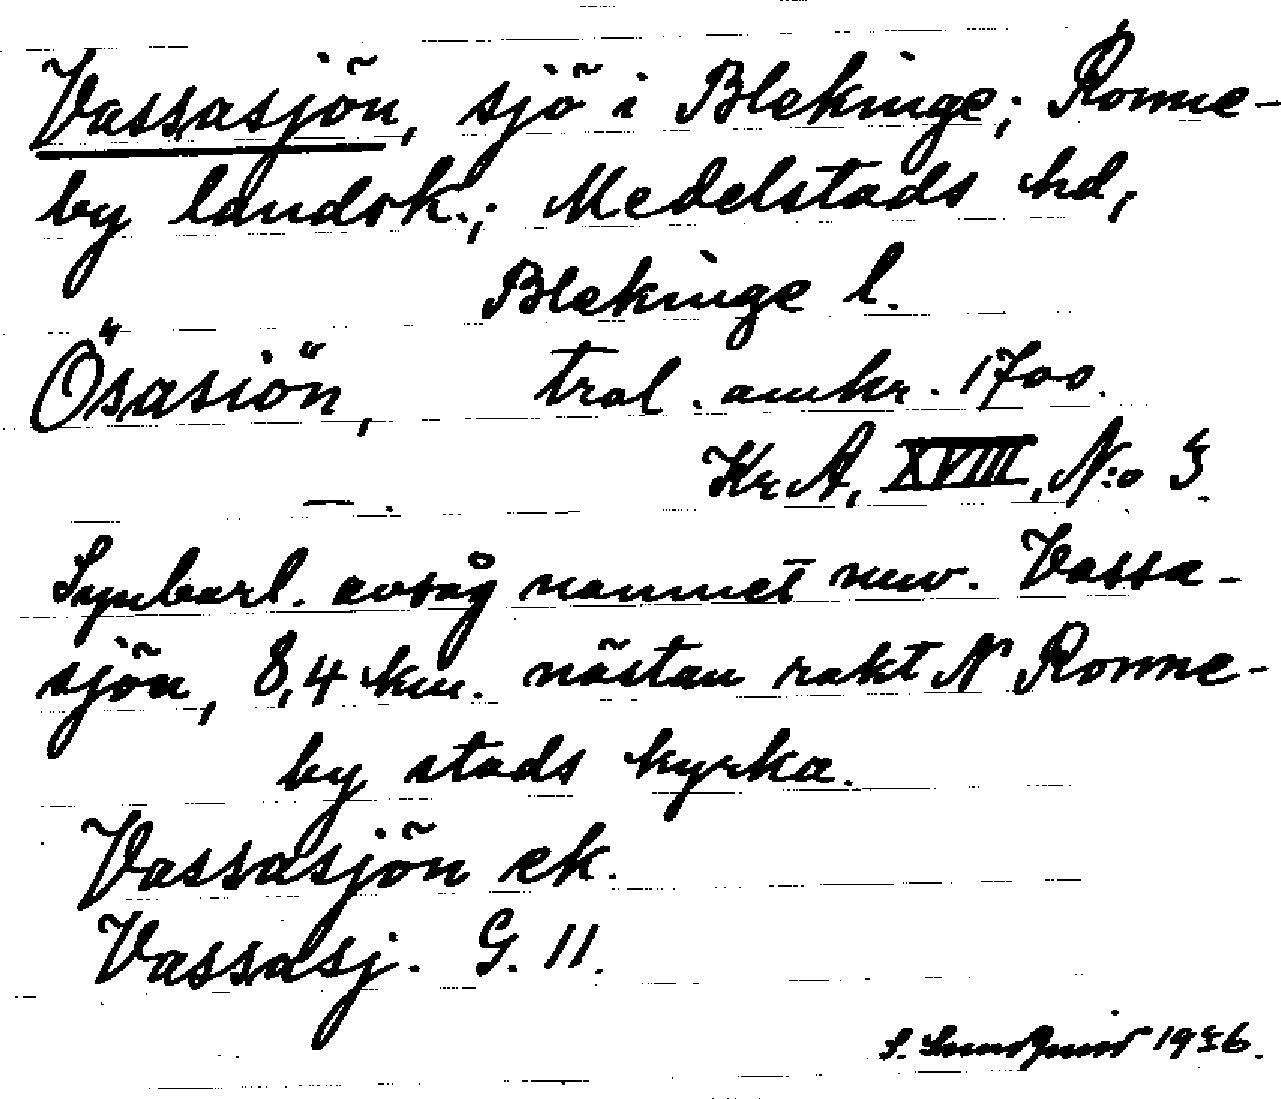 Vassasjön, sjö i Blekinge; Ronne-
by landsk.; Medelstads hd,
Blekinge l.
Ösasiön, trol. omkr. 1700.
KrA, XVIII, N:o 5.
—.
Synbarl. avsåg namnet nuv. Vassa-
sjön, 8,4 km. nästan rakt N Ronne-
by stads kyrka.
Vassasjön ek.
Vassasj. G. 11.
S. Lundquist 1956.